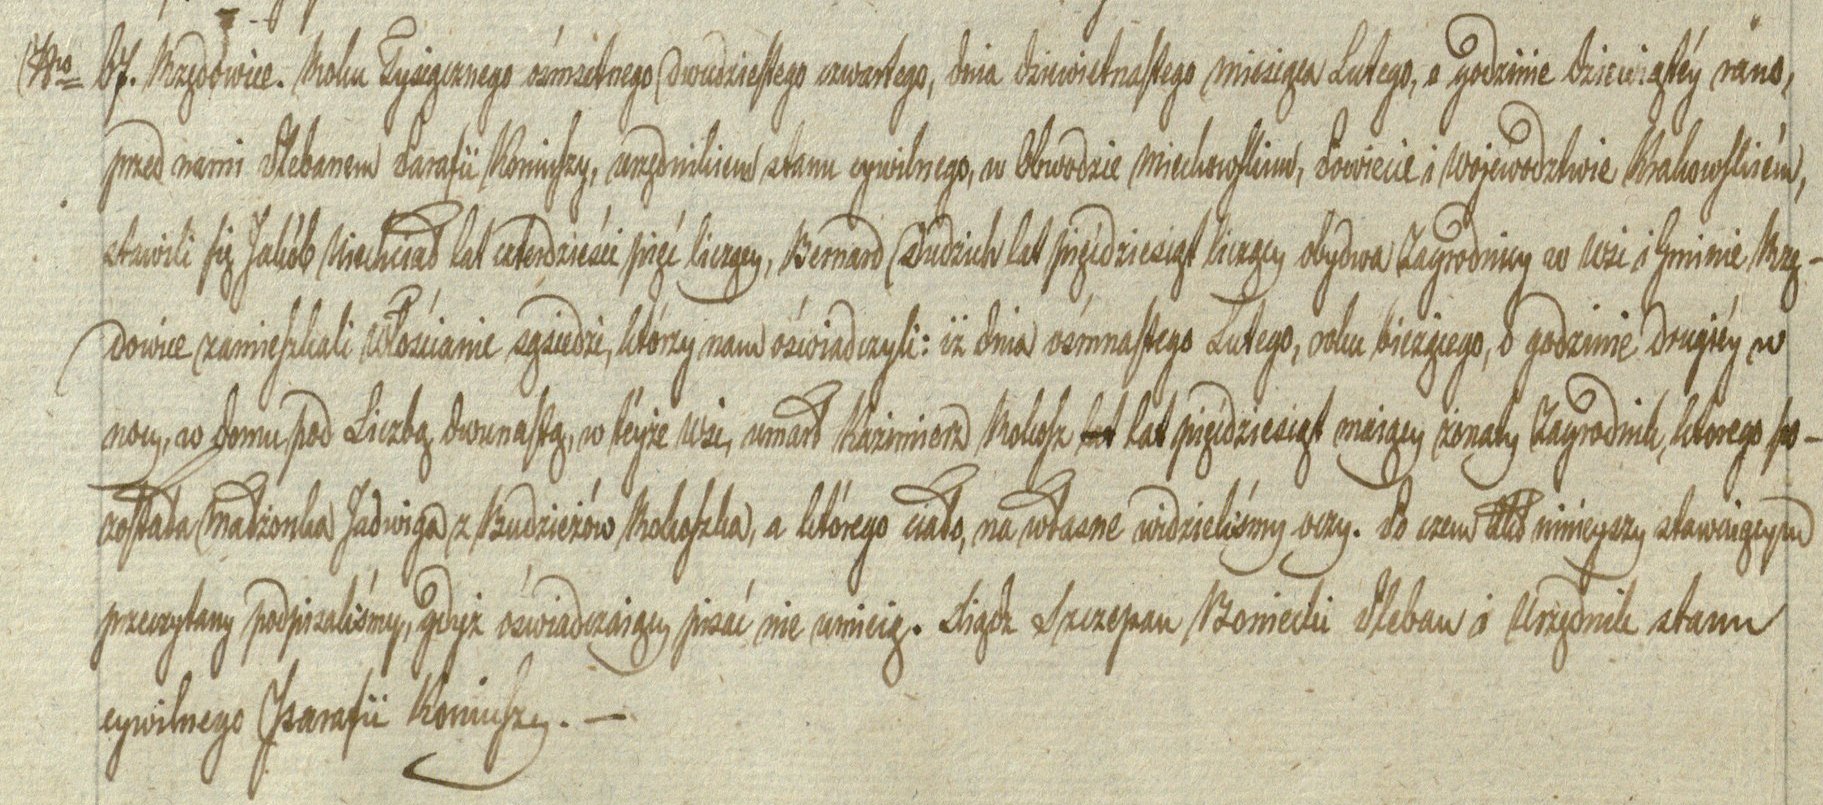 Nro 67. Rzędowice. Roku Tysiącznego ośmsetnego dwudziestego czwartego, dnia dziewietnastego miesiąca Lutego, o godzinie dziewiątéy rano,
przed nami Plebanem Parafii Koniuszy, urzędnikiem stanu cywilnego, w Obwodzie Miechowskim, Powiecie i Wojewodztwie Krakowskiém,
stawili się Jakób lat czterdzieści pięć liczący, Bernard Dudzich lat pięćdziesiąt liczący obydwa Zagrodnicy w Wsi i Gminie Rzę-
dowice zamieszkali Włościanie sąsiedzi, którzy nam oświadczyli: iż dnia ośmnastego Lutego, roku bieżącego, o godzinie drugiéy w
nocy, w domu pod Liczbą dwunastą, w téyże Wsi, umarł Kazimierz Rokosz lat pięćdziesiąt maiący żonaty Zagrodnik, ktorego po-
została Małżonka Jadwiga z Rokoszka, a którego ciało, na własne widzieliśmy oczy. Po czem Akt ninieyszy stawaiącym
przeczytany podpisaliśmy, gdyż oświadczaiący pisać nie umieią. Xiądz Szczepan Boniecki Pleban i Urzędnik stanu
cywilnego Parafii Koniuszy. —